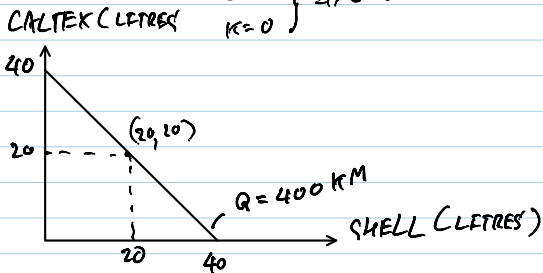 CALTEX (LITRES
K=0 }
40
(20,20)
20
Q = 400 KM
SHELL (LITRES)
20
40